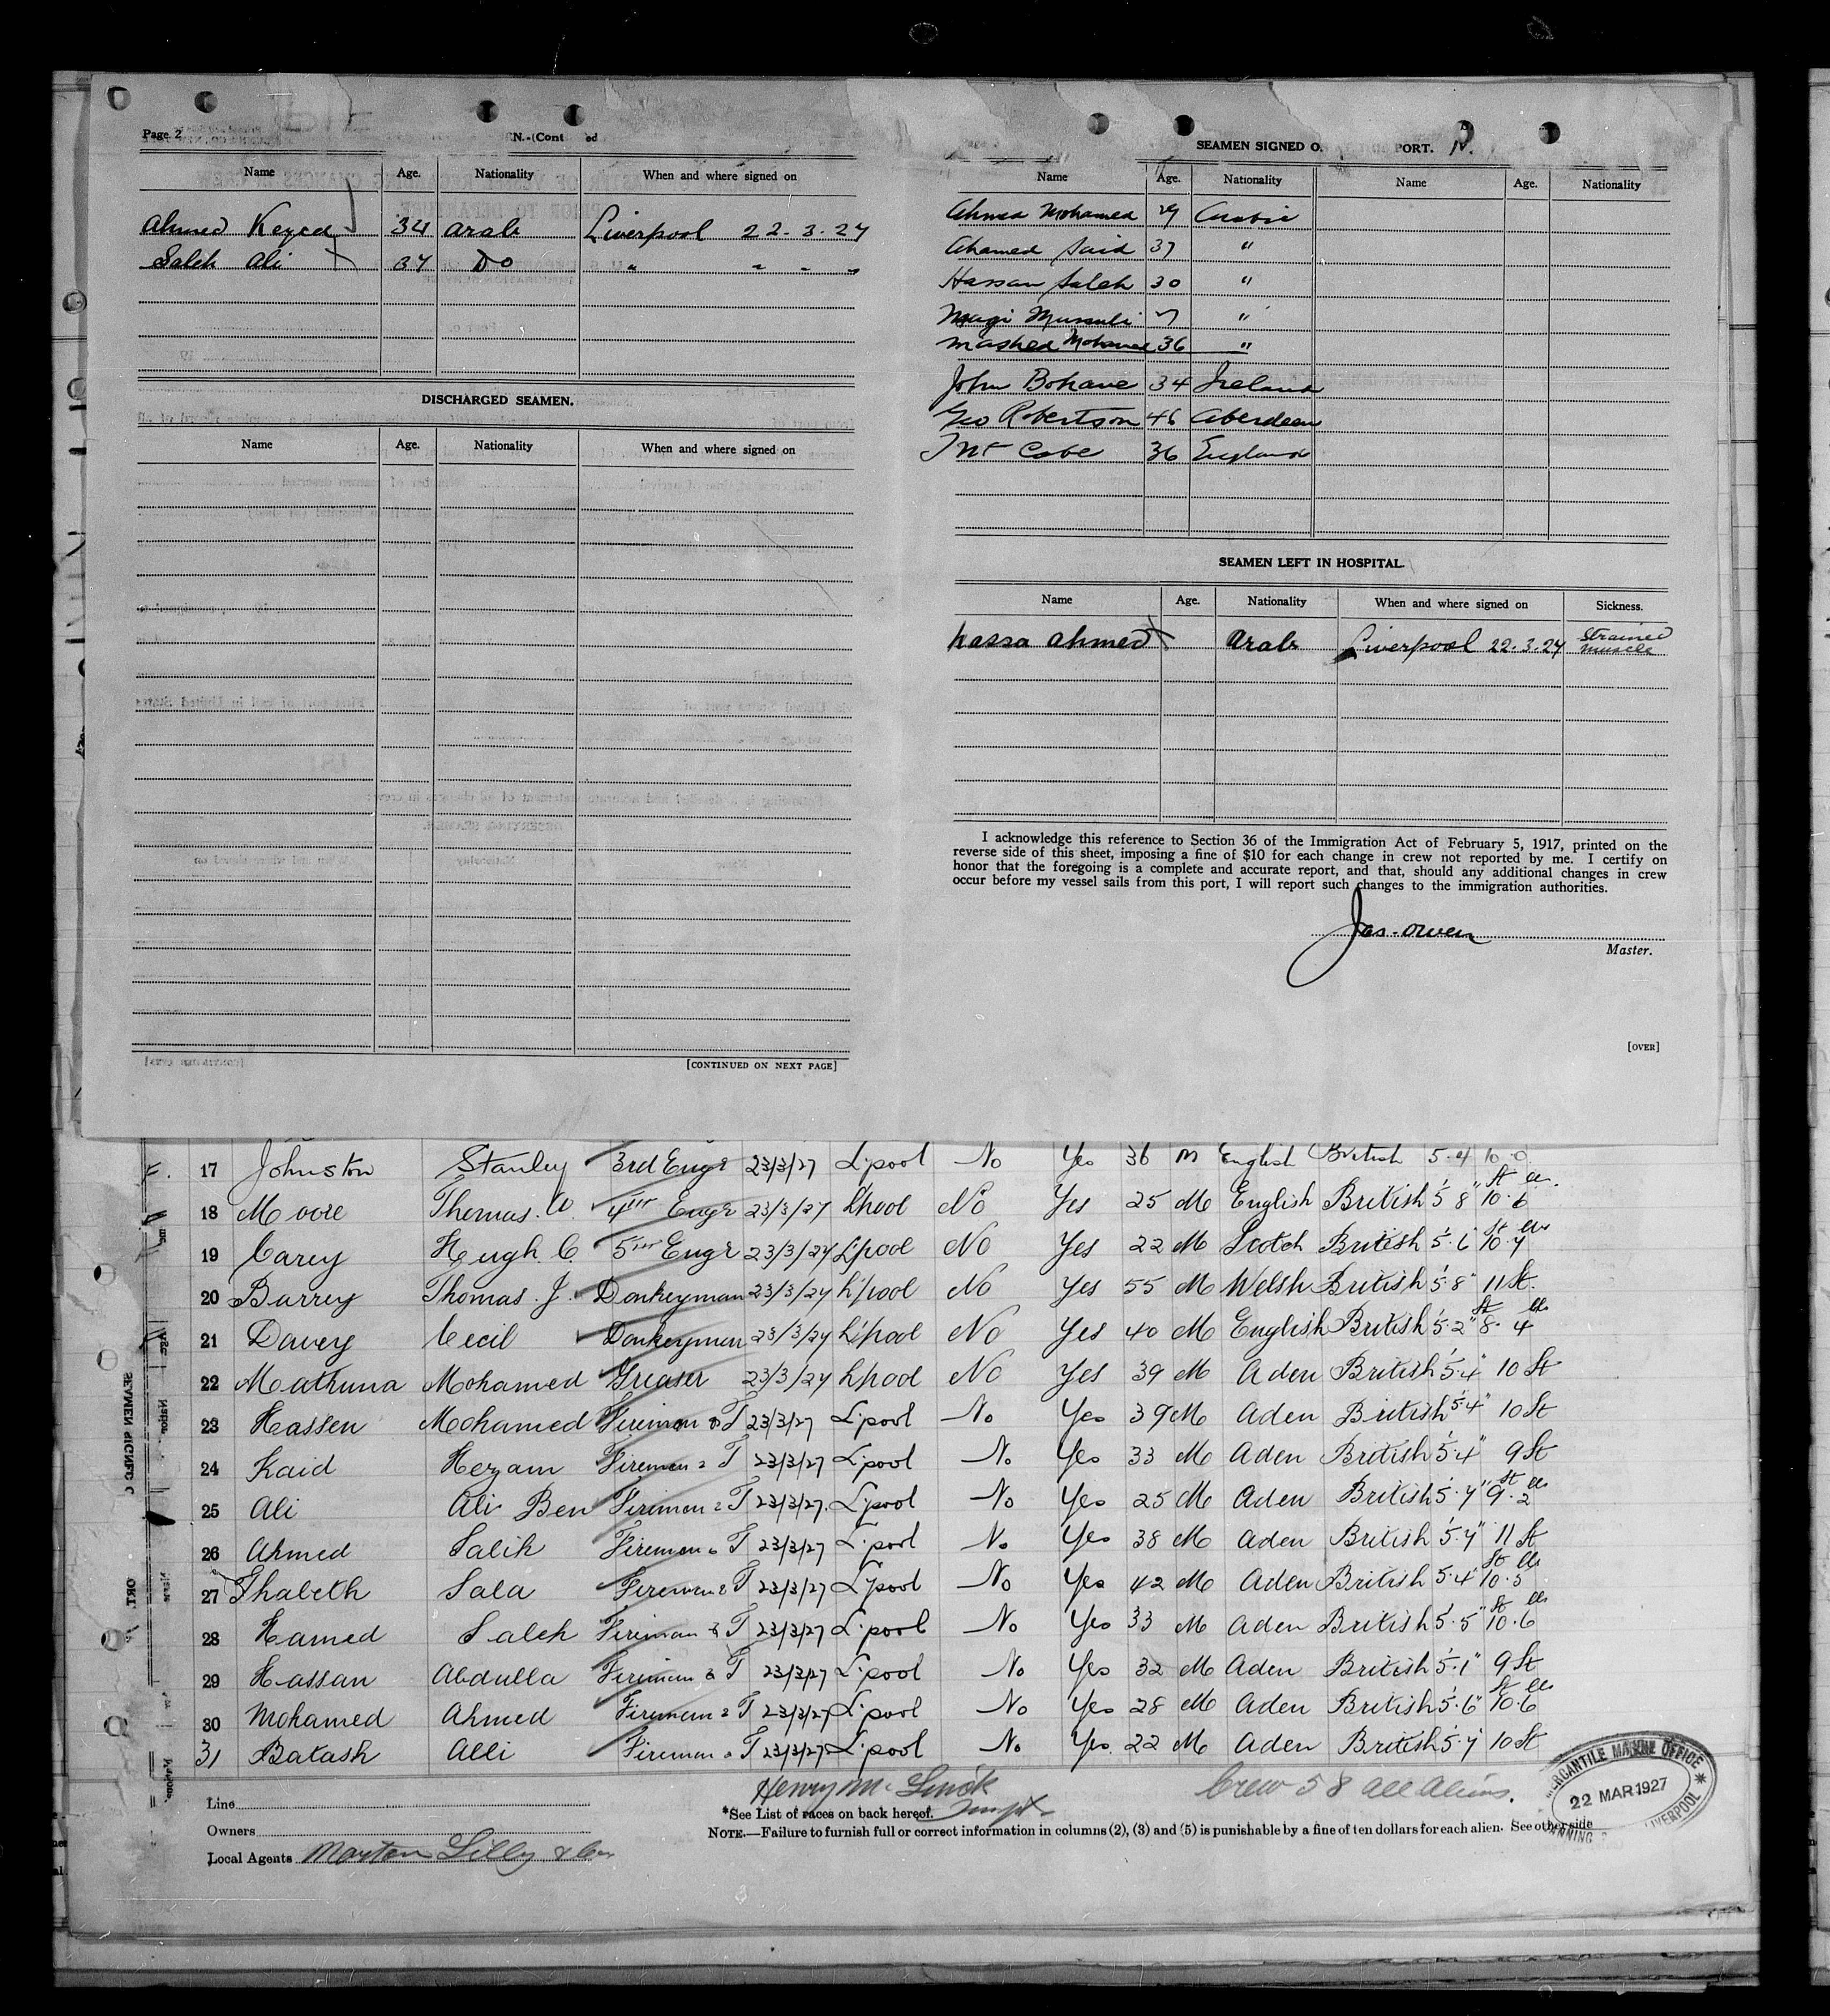 Page 2
N.-(Cont ed
Name Age. Nationality When and where signed on
Ahmed Keyed 34 Arab Liverpool 22-3-27
Saleh Ali 37 Do " " " "
DISCHARGED SEAMEN.
Name Age. Nationality When and where signed on
[CONTINUED ON NEXT PAGE]
SEAMEN SIGNED O. PORT. N.
Name Age. Nationality Name Age. Nationality
Ahmed Mohamed 29 Arabia
Ahamed Said 37 "
Hassan Saleh 30 "
"
Mashed Mohamed 36 "
John Bohane 34 Ireland
Geo Robertson 46 Aberdeen
Cabe 36 England
SEAMEN LEFT IN HOSPITAL.
Name Age. Nationality When and where signed on Sickness.
hassa Ahmed Arab Liverpool 22.3.27 Strained muscle
I acknowledge this reference to Section 36 of the Immigration Act of February 5, 1917, printed on the
reverse side of this sheet, imposing a fine of $10 for each change in crew not reported by me. I certify on
honor that the foregoing is a complete and accurate report, and that, should any additional changes in crew
occur before my vessel sails from this port, I will report such changes to the immigration authorities.
Jas. Owen
Master.
[OVER]
17 Johnston Stanley 3rd Engr 23/3/27 L'pool No Yes 36 M English British 5.4 10.0
18 Moore Thomas. W 4th Engr 23/3/27 L'pool No Yes 25 M English British 5'8" 10.6
19 Carey Hugh. C. 5th Engr 23/3/27 L'pool No Yes 22 M Scotch British 5'.6" 10.7
20 Barrey Thomas. J. Donkeyman 23/3/27 L'pool No Yes 55 M Welsh British 5'8" 11 St.
21 Davey Cecil Donkeyman 23/3/27 L'pool No Yes 40 M English British 5'.2" 8.4
22 Mathuna Mohamed Greaser 23/3/27 L'pool No Yes 39 M Aden British 5'.4" 10 St
23 Hassen Mohamed Fireman & T 23/3/27 L'pool No Yes 39 M Aden British 5'4" 10 St
24 Kaid Hezam Fireman & T 23/3/27 L'pool No Yes 33 M Aden British 5'.4" 9 St
25 Ali Ali Ben Fireman & T 23/3/27 L'pool No Yes 25 M Aden British 5'.7" 9.2
26 Ahmed Salih Fireman & T 23/3/27 L'pool No Yes 38 M Aden British 5'.7" 11 St
27 Thabeth Sala Fireman & T 23/3/27 L'pool No Yes 42 M Aden British 5'.4" 10.5
28 Hamed Saleh Fireman & T 23/3/27 L'pool No Yes 33 M Aden British 5'.5" 10.6
29 Hassan Abdulla Fireman & T 23/3/27 L'pool No Yes 32 M Aden British 5'.1" 9 St
30 Mohamed Ahmed Fireman & T 23/3/27 L'pool No Yes 28 M Aden British 5'.6" 10.6
31 Batash Alli Fireman & T 23/3/27 L'pool No Yes 22 M Aden British 5'.7" 10 St
Line
Owners
Local Agents
*See List of races on back hereof.
Crew 58 all Aliens.
NOTE.—Failure to furnish full or correct information in columns (2), (3) and (5) is punishable by a fine of ten dollars for each alien. See other side
MERCANTILE MARINE OFFICE
22 MAR 1927
LIVERPOOL